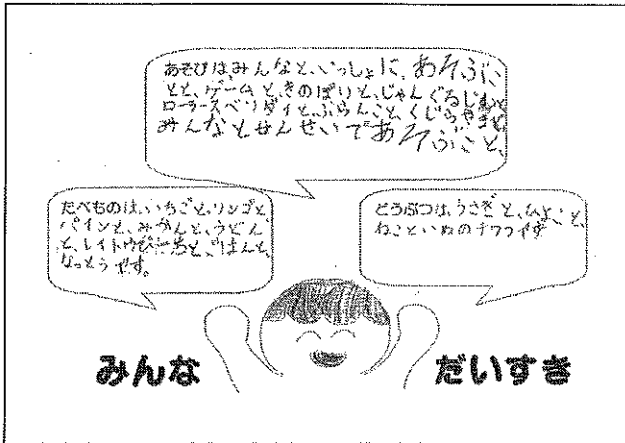 あそびは、みんなと、いっしょに、あそぶこ
とと、ゲームと、きのぼりと、じゃんぐるじむと、
ローラースベリダイと、ぶらんこと、くじらやまと、
みんなとせんせいであそぶこと、
たべものは、いちごと、リンゴと、
パインと、みかんと、うどん
と、レイトウ と、ごはんと、
なっとうです。
どうぶつは、うさぎと、ひよこと、
ねこといぬのチワワです
みんな だいすき